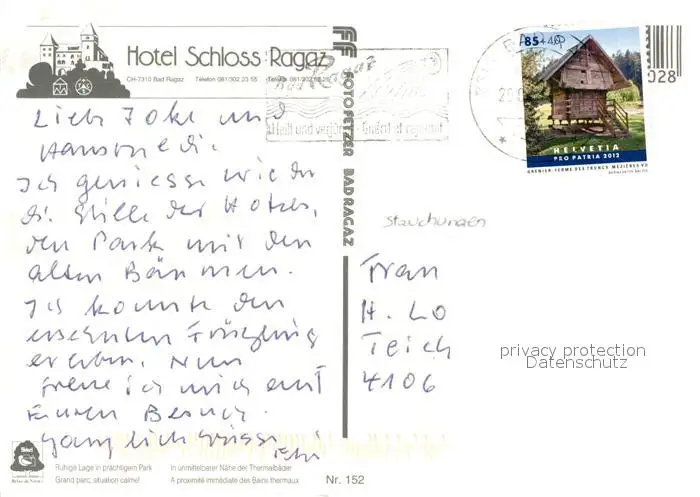 Hotel Schloss Ragaz
CH-7310 Bad Ragaz Telefon 081/302 23 55 Telefax 081/302 62 26
Bad Ragaz
Heilt und verjüngt - Guérit et rajeunit
85+40
HELVETIA
PRO PATRIA 2012
GRENIER-FERME DES TRONCS MEZIERES VD
028
FOTO FETZER BAD RAGAZ
Liebe und
Ich geniesse wieder
die Stille des Hotels,
den Park mit den
alten Bäumen.
Ich konnte den
ersehnten Frühling
erleben. Nun
freue ich mich auf
Euren Besuch.
Ganz lich Grüsse
Stauchungen
Frau
H. Lo
Teich
4106
privacy protection
Datenschutz
Ruhige Lage in prächtigem Park In unmittelbarer Nähe der Thermalbäder
Grand parc, situation calme! A proximité immédiate des Bains thermaux
Nr. 152